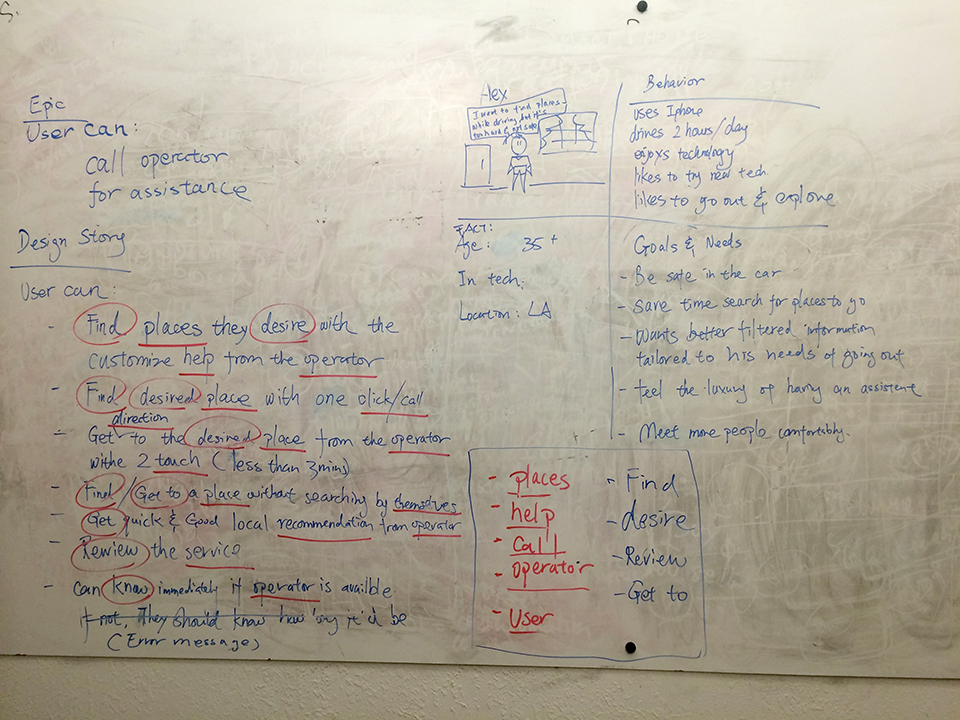 Epic
User can:
call operator
for assistance
Design Story
User can:
- Find places they desire with the
customize help from the operator
- Find desired place with one click/call
direction
- Get to the desired place from the operator
withe 2 touch (less than 3mins)
- Find/Get to a place without searching by themselves
- Get quick & Good local recommendation from operator
- Rewiew the service
- can know immediately if operator is availble.
if not, They should know how long it'd be
(Error message)
Alex
I want to find places
while driving but it's
too hard & not safe
FACT:
Age: 35+
In tech:
Location: LA
Behavior
uses Iphone
drives 2 hours/day
enjoys technology
likes to try new tech.
likes to go out & explore
Goals & Needs
- Be safe in the car
- Save time search for places to go
- Wants better filtered information
tailored to his needs of going out
- feel the luxury of having an assistent
- Meet more people comfortably.
- places
- help
- Call
- operator
- User
- Find
- desire
- Review
- Get to